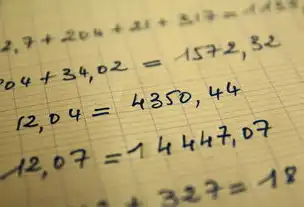 2,7 + 204 + 21 + 317 = 113
04 + 34,02 = 1572,32
12,04 = 4350,44
12,07 = 14447,07
+ 327 = 18